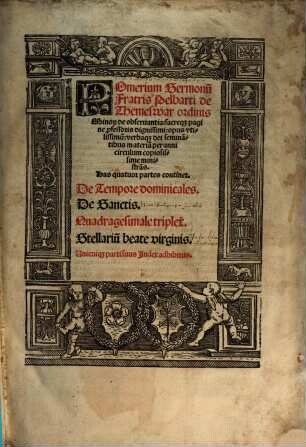 POmerium Sermonũ
Fratris Pelbarti de
Themeswar ordinis
Minoꝝ de obseruantia: sacreqꝫ pagi
ne ꝓfessoris dignissimi: opus vti-
lissimũ: verbaqꝫ dei seminã-
tibus materiã per anni
circulum copiosis-
sime minis
strãs.
Has quatuor partes continet.
De Tempore dominicales.
De Sanctis.
Quadragesimale triplex.
Stellariũ beate virginis.
Unicuiqꝫ parti suus Index adhibitus.